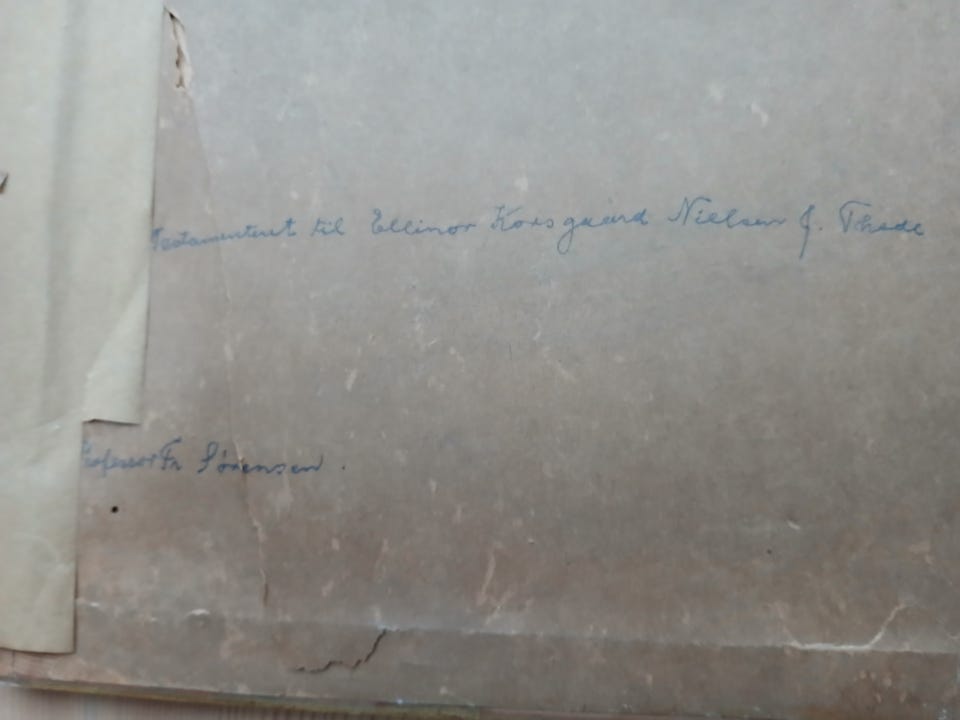 Testamenteret til Ellinor Korsgaard Nielsen f. Thade
Professor Fr Sørensen.